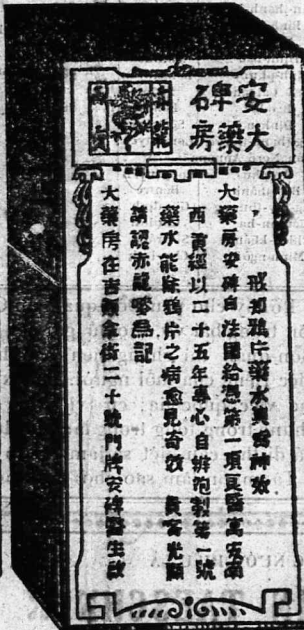 安碑石
大藥房
赤龍
鴉片藥水神效
大藥房安碑自法國給憑第一項醫寓安南
西貢經以二十五年專心自辦炮製第一號
藥水能除鴉片之病愈見奇效 貴客光顧
請認赤龍嘜為記
大藥房在街二十號門牌安碑醫生啟